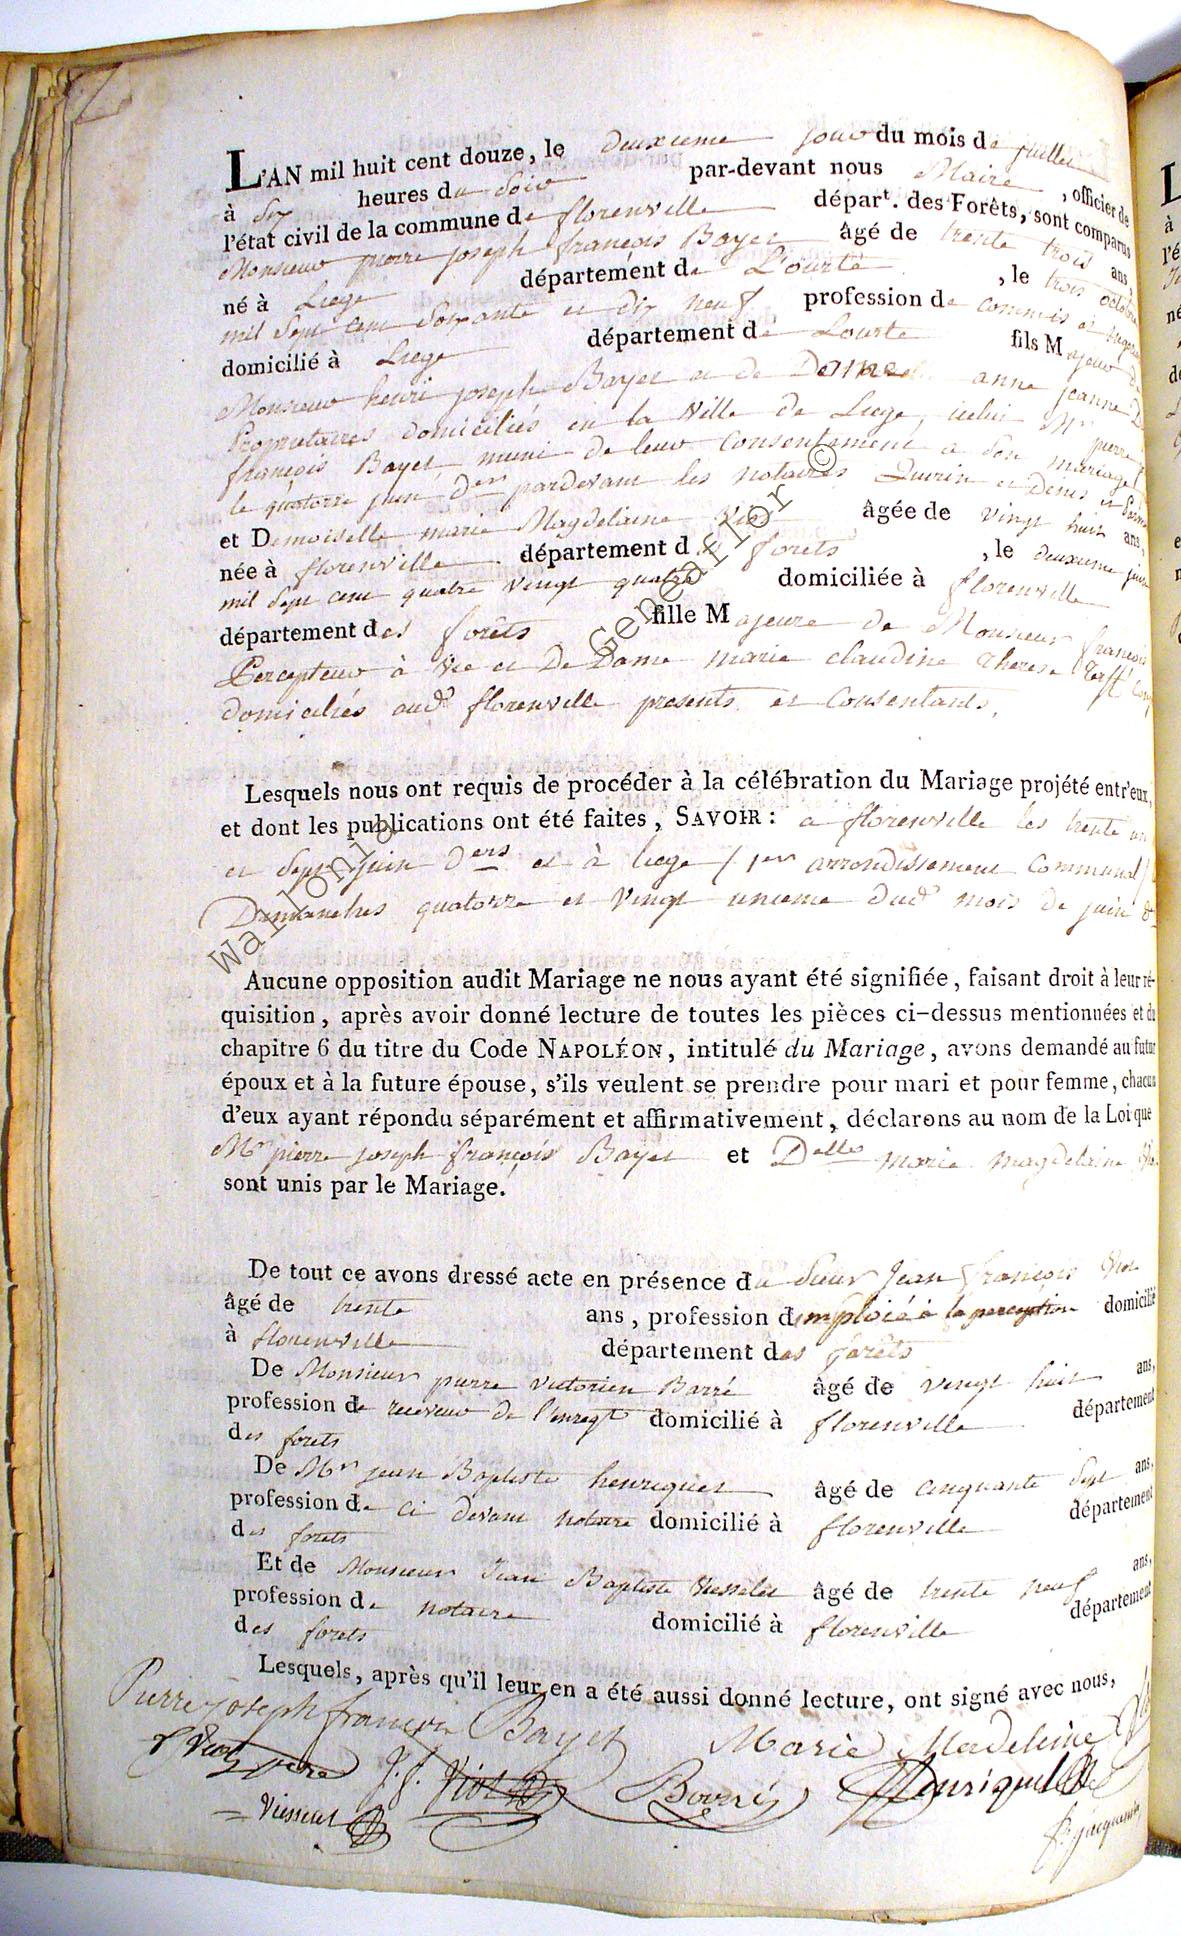 L'AN mil huit cent douze, le deuxieme jour du mois de juillet
à six heures du soir par-devant nous Maire, officier de
l'état civil de la commune de florenville départ. des Forêts, sont comparus
Monsieur pierre joseph françois Bayet âgé de trente trois ans,
né à Liege département de L'ourte, le trois octobre
mil sept cent soixante et dix neuf profession de commis et
domicilié à Liege département de Lourte fils Majeur de
Monsieur henri joseph Bayet et de Dame anne jeanne
Propriétaires domiciliés en la Ville de Liege, icelui Mr pierre
françois Bayet muni de leur Consentement a son mariage
le quatorze juin der pardevant les notaires Quirin et Denis et
et Demoiselle marie Magdelaine Viot âgée de vingt huit ans,
née à florenville département des forets, le deuxieme juin
mil sept cent quatre vingt quatre domiciliée à florenville
département des forêts fille Majeure de Monsieur francois
Percepteur à Vie et De Dame marie claudine therese
domiciliés aud. florenville presents et Consentants.
Lesquels nous ont requis de procéder à la célébration du Mariage projété entr'eux,
et dont les publications ont été faites, SAVOIR : a florenville les trente un
et sept juin ders et à liege / 1er arrondissement Communal /
Dimanches quatorze et vingt unieme dud. mois de juin
Aucune opposition audit Mariage ne nous ayant été signifiée, faisant droit à leur ré-
quisition, après avoir donné lecture de toutes les pièces ci-dessus mentionnées et du
chapitre 6 du titre du Code NAPOLÉON, intitulé du Mariage, avons demandé au futur
époux et à la future épouse, s'ils veulent se prendre pour mari et pour femme, chacun
d'eux ayant répondu séparément et affirmativement, déclarons au nom de la Loi que
Mr pierre joseph françois Bayet et Delle marie magdelaine
sont unis par le Mariage.
De tout ce avons dressé acte en présence du Sieur Jean francois Viot
âgé de trente ans, profession d'emploié à la perception domicilié
à florenville département des forêts
De Monsieur pierre victorien Barré âgé de vingt huit ans,
profession de receveur de l'enregt domicilié à florenville département
des forets
De Mr jean Baptiste henriquet âgé de cinquante sept ans,
profession de ci devant notaire domicilié à florenville département
des forets
Et de Monsieur Jean Baptiste Viesselet âgé de trente neuf ans,
profession de notaire domicilié à florenville département
des forets
Lesquels, après qu'il leur en a été aussi donné lecture, ont signé avec nous,
Pierre joseph françois Bayet Marie Madeleine
Viot pere J. f. Viot Barré Henriquet
Wallonia Geneaflor ©